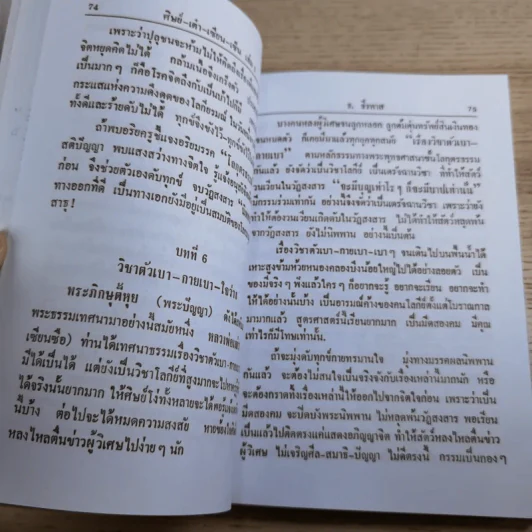 74
ศิษย์-เต๋า-เซียน-เซ็น
เพราะว่าปุถุชนจะห้ามไม่ให้คิดถึง
จิตหยุดคิดไม่ได้ กล้ามเนื้อจึงเกร็งตัว
เป็นมาก ๆ ก็คือโรคจิตถึงกับเป็นบ้าไปก็มี
กระแสแห่งความดึงดูดของโลกียารมณ์
ทั้งดีและร้ายดับไม่ได้ ทุกข์จึงขังไว้
ถ้าพบอริยครูชี้แจงอริยมรรค
สติปัญญา พบแสงสว่างทางจิตใจ
ก่อน จึงช่วยตัวเองดับทุกข์ จบวัฏสงสาร
ทางออกที่ดี เป็นทางเอกยังมีอยู่เป็นสมบัติของโลก
สาธุ!
บทที่ 6
วิชาตัวเบา-กายเบา-ใจว่าง
พระภิกษุตุ๊หุย (พระปัญญา)
พระธรรมเทศนามาอย่างนี้สมัยหนึ่ง
เซียนซือ) ท่านได้เทศนาธรรมเรื่องวิชาตัวเบา-กายเบา
มีได้เป็นได้ แต่ยังเป็นวิชาโลกีย์ที่สูงมากจะไปหา
ได้จริงนั้นยากมาก ให้ศิษย์โง่ทั้งหลายจะได้
นี้บ้าง ต่อไปจะได้หมดความสงสัย
หลงไหลตื่นข่าวผู้วิเศษไปง่าย ๆ นัก
75
บางคนหลงผู้วิเศษจนถูกหลอก
จนหมดตัว ก็เคยมีมาแล้วทุกยุคทุกสมัย "เรื่องวิชาตัวเบา-
กายเบา" ตามหลักธรรมทางพระพุทธศาสนาชั้นโลกุตรธรรม
กันแล้ว ยังจัดว่าเป็นวิชาโลกีย์ เป็นเดรัจฉานวิชา ที่ทำให้สัตว์
วนเวียนในวัฏสงสาร "จะมีบุญเท่าไร ๆ ก็จะมีบาปเท่านั้น"
มีกรรมร่วมเท่ากัน อย่างนี้จึงชี้ว่าเป็นเดรัจฉานวิชา เพราะว่ายัง
ทำให้ต้องวนเวียนเกิดดับในวัฏสงสาร ไม่ได้ทำให้สัตว์หลุดพ้น
จากวัฏสงสาร ยังไม่นิพพาน อย่างนี้เป็นต้น
เรื่องวิชาตัวเบา-กายเบา ๆ จนเดินไปบนพื้นน้ำได้
เหาะสูงข้ามห้วยหนองคลองบึงน้อยใหญ่ไปได้อย่างลอยตัว เป็น
ของมีจริง ๆ ฟังแล้วใคร ๆ ก็อยากจะรู้ อยากจะเรียน อยากจะทำ
ให้ได้อย่างนั้นบ้าง เป็นอารมณ์ค้างของคนโลกีย์ตั้งแต่โบราณกาล
มามากแล้ว สูตรศาสตร์นี้เรียนยากมาก เป็นมีดสองคม มีคุณ
เท่าไรก็มีโทษเท่านั้น.
ถ้าจะมุ่งดับทุกข์ภายทรมานใจ มุ่งทางบรรคผลนิพพาน
แล้ว จะต้องไม่สนใจเป็นจริงจังกับเรื่องเหล่านี้มากนัก หรือ
จะต้องกราดทิ้งเรื่องเหล่านี้ให้ออกไปจากจิตใจก่อน เพราะว่าเป็น
มีดสองคม จะปิดบังพระนิพพาน ไม่หลุดพ้นวัฏสงสาร พอเรียน
เป็นแล้วไปติดตรงแค่แสดงอภิญญาจิต ทำให้สัตว์หลงไหลตื่นข่าว
ผู้วิเศษ ไม่เจริญศีล-สมาธิ-ปัญญา ไม่ดีตรงนี้ กรรมเป็นกอง ๆ